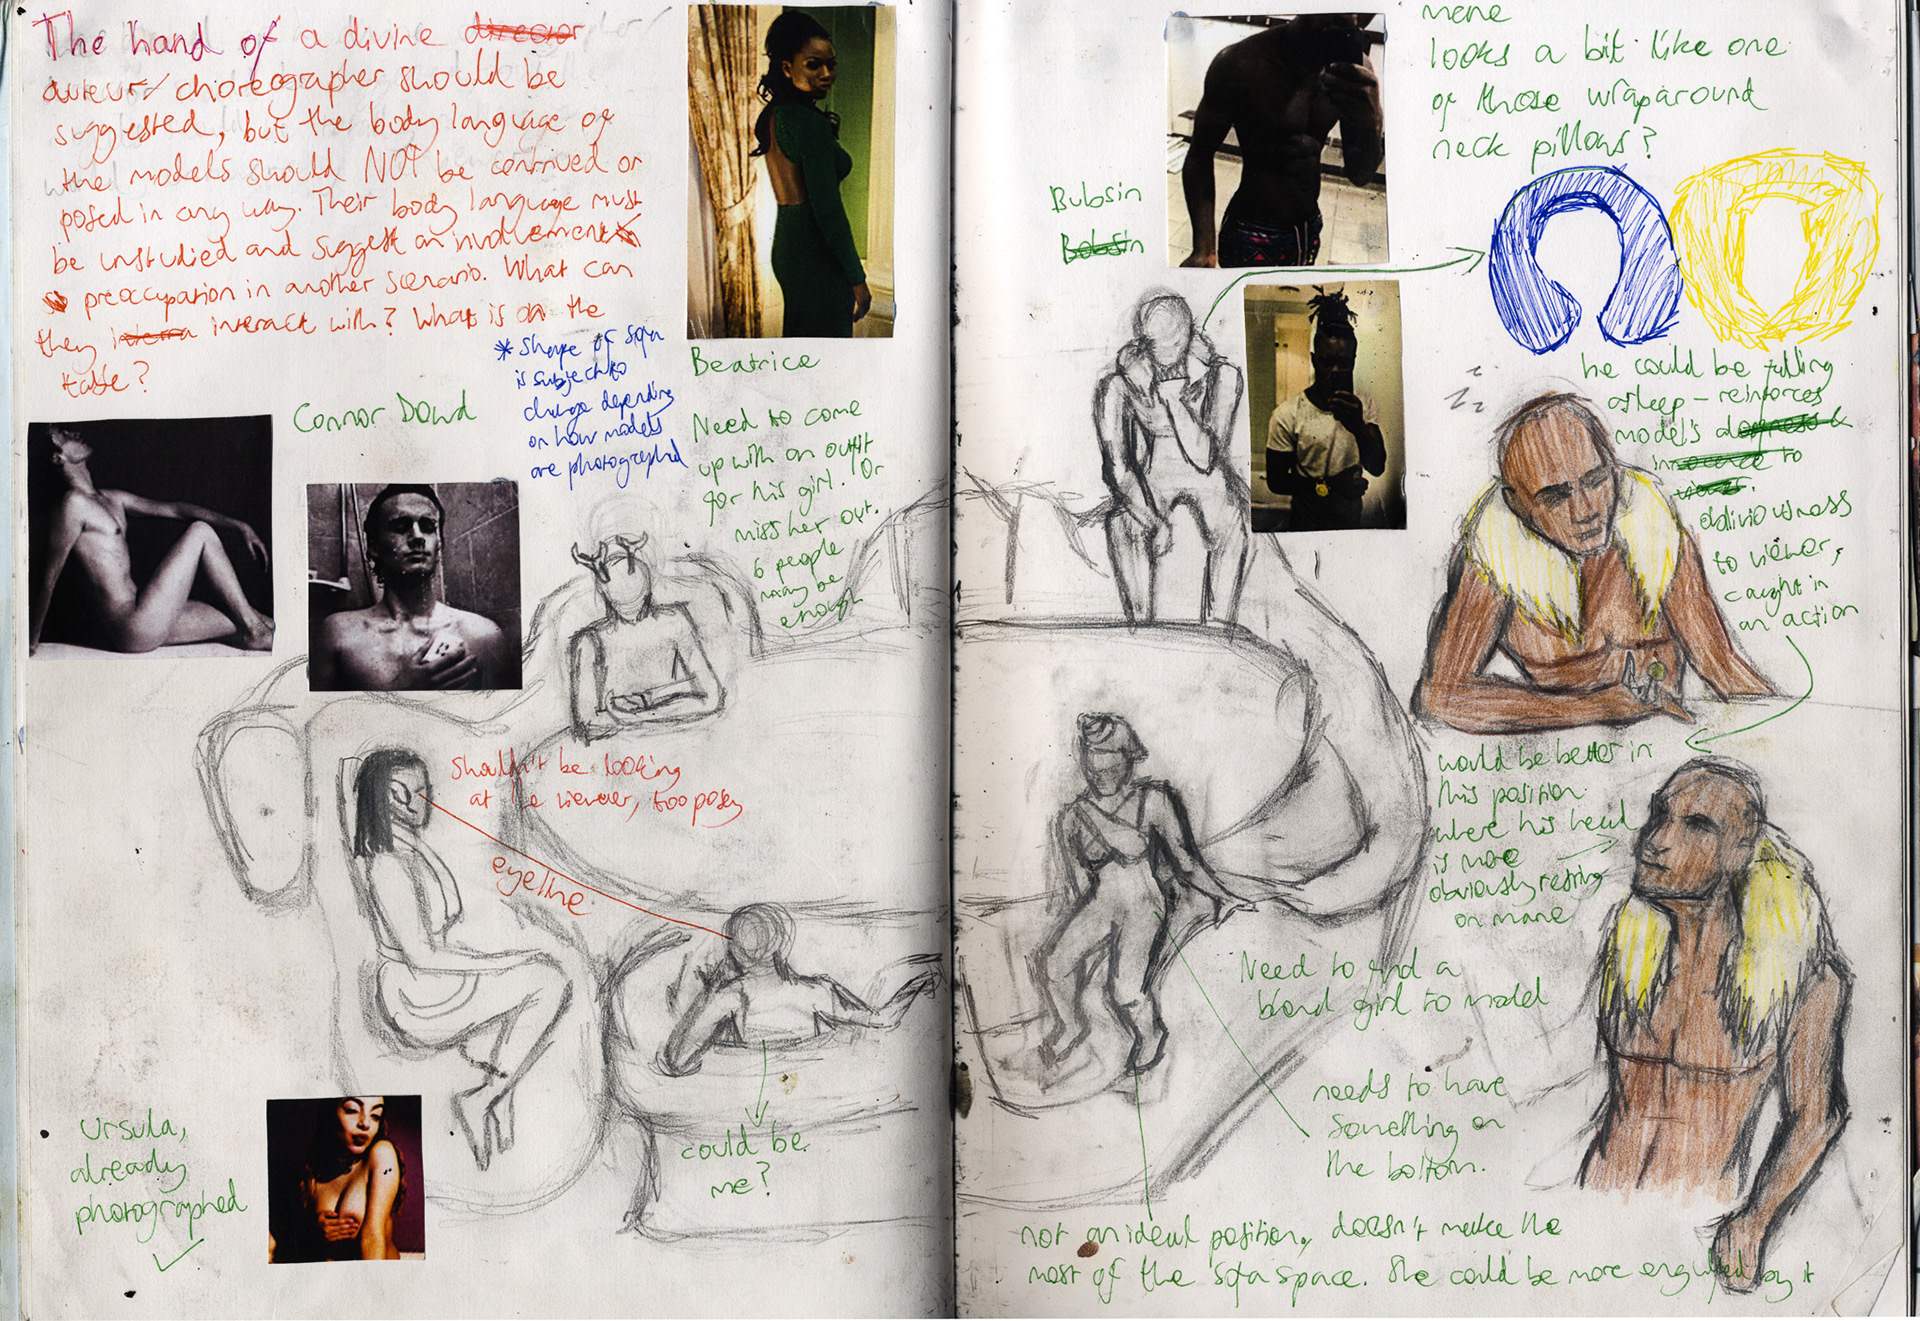 The hand of a divine director
auteur/choreographer should be
suggested, but the body language of
the models should NOT be contrived or
posed in any way. Their body language must
be unstudied and suggest an involvement
preoccupation in another scenario. What can
they interact with? What is on the
table?
* Shape of sofa
is subject to
change depending
on how models
are photographed
Connor Dowd
Beatrice
Need to come
up with an outfit
for this girl. Or
miss her out.
6 people
may be
enough
shouldn't be looking
at the viewer, too posey
eyeline
Ursula,
already
photographed
could be
me?
Bubsin
Bobsin
mene
looks a bit like one
of those wraparound
neck pillows?
he could be falling
asleep – reinforces
model's
innocence to
views.
obliviousness
to viewer,
caught in
an action
would be better in
this position
where his head
is more
obviously resting
on mane
Need to find a
blond girl to model
needs to have
Something on
the bottom.
not an ideal position, doesn't make the
most of the sofa space. She could be more engulfed by it